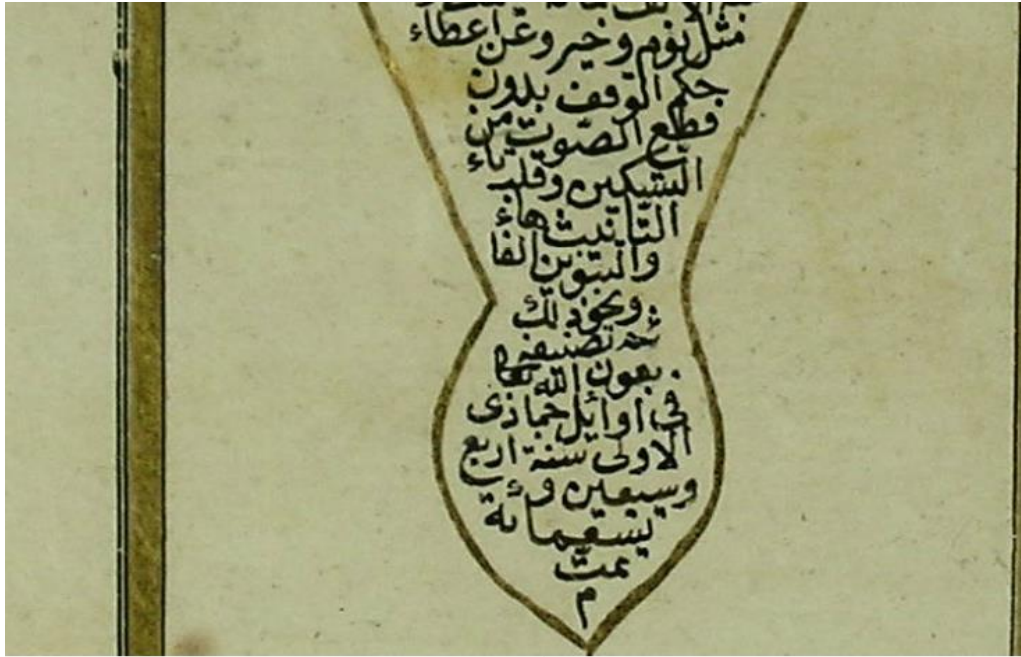 مثل يوم وخير وعن اعطاء
حكم الوقف بدون
قطع الصّوت من
التسكين وقلب تاء
التّانيث هاءً
والتنوين الفا
ونحو ذلك
تمّ تصنيفه
بعون الله تعا
فى اوائل جماذى
الاولى سنة اربع
وسبعين و
تسعمائة
تمت
م